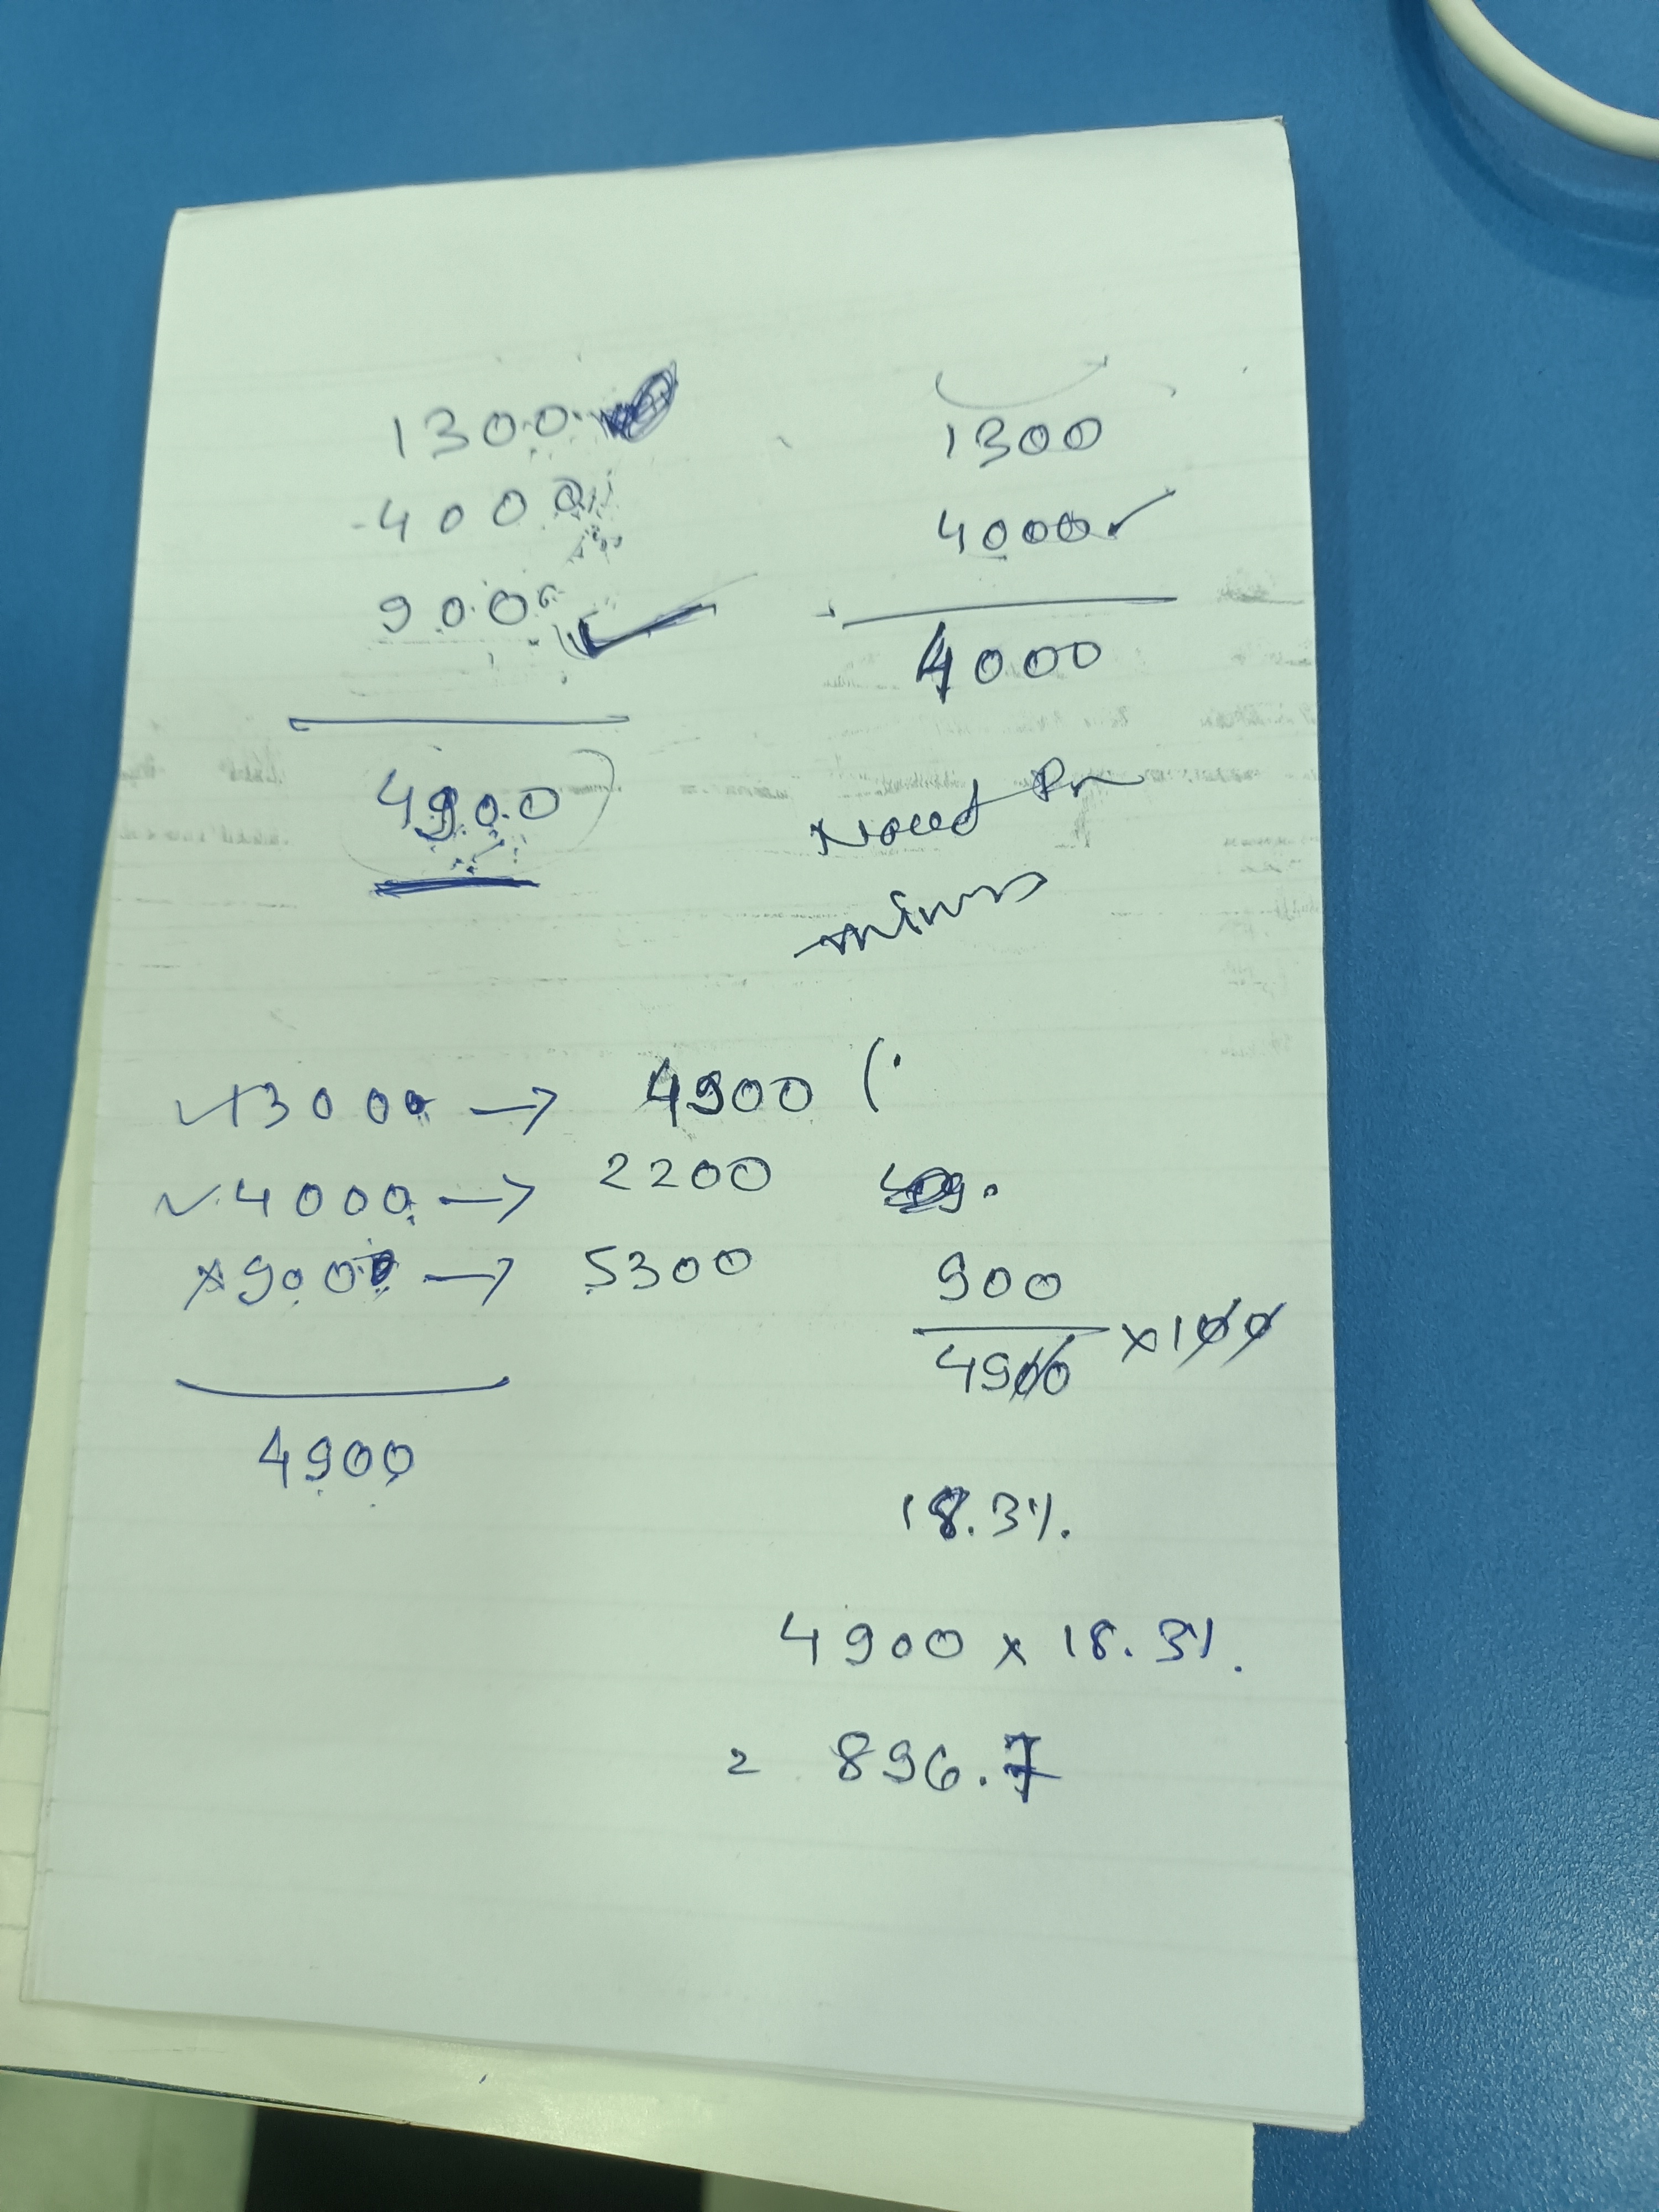 1300
4000
900
4900
1300
4000 ✓
4000
Need in
minus
✓ 1300 → 4900 (
✓ 4000 → 2200
x 900 → 5300
4900
900
4900 x 100
18.3%
4900 x 18.3%
= 896.7